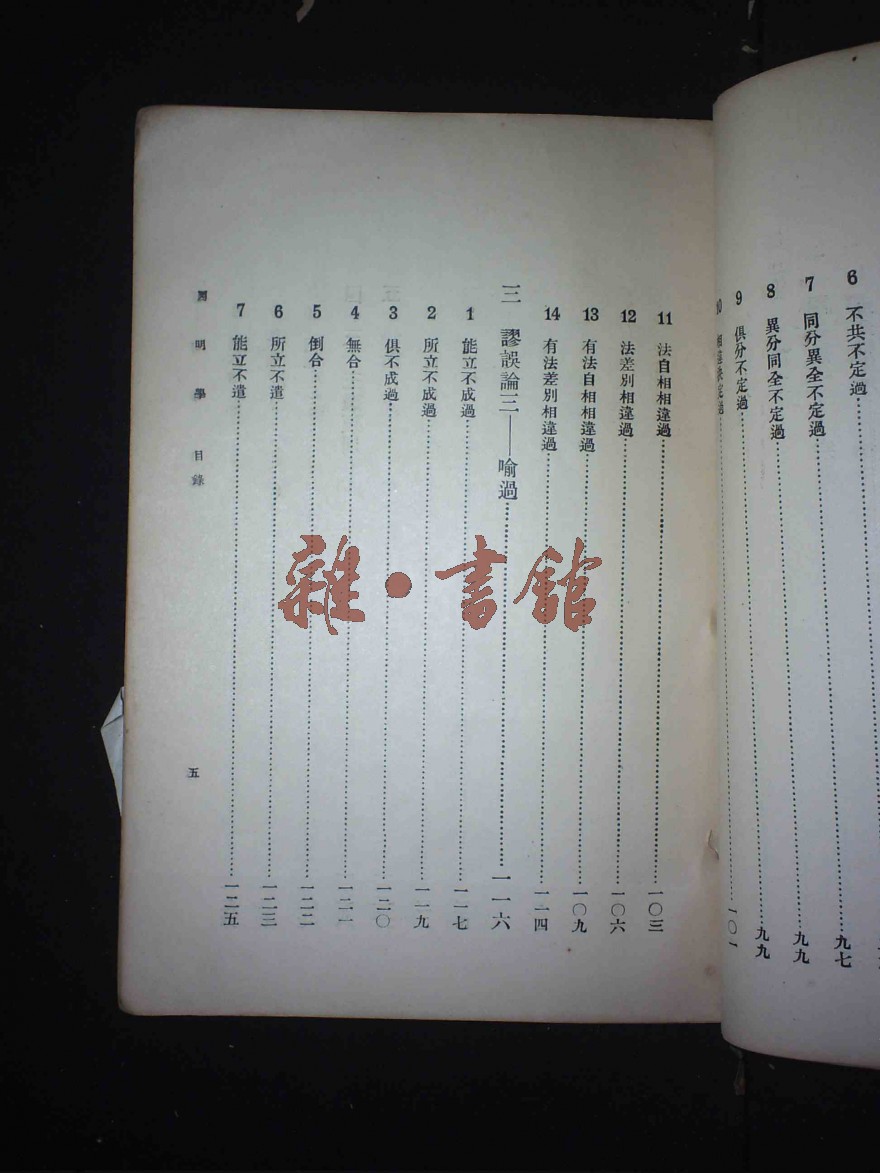 6 不共不定過……九七
7 同分異全不定過……九九
8 異分同全不定過……九九
9 俱分不定過
10 相違決定過……一〇一
11 法自相相違過……一〇三
12 法差別相違過……一〇六
13 有法自相相違過……一〇九
14 有法差別相違過……一一四
三 謬誤論三——喻過……一一六
1 能立不成過……一一七
2 所立不成過……一一九
3 俱不成過……一二〇
4 無合……一二一
5 倒合……一二二
6 所立不遣……一二三
7 能立不遣……一二五
明學 目錄
五
雜·書館